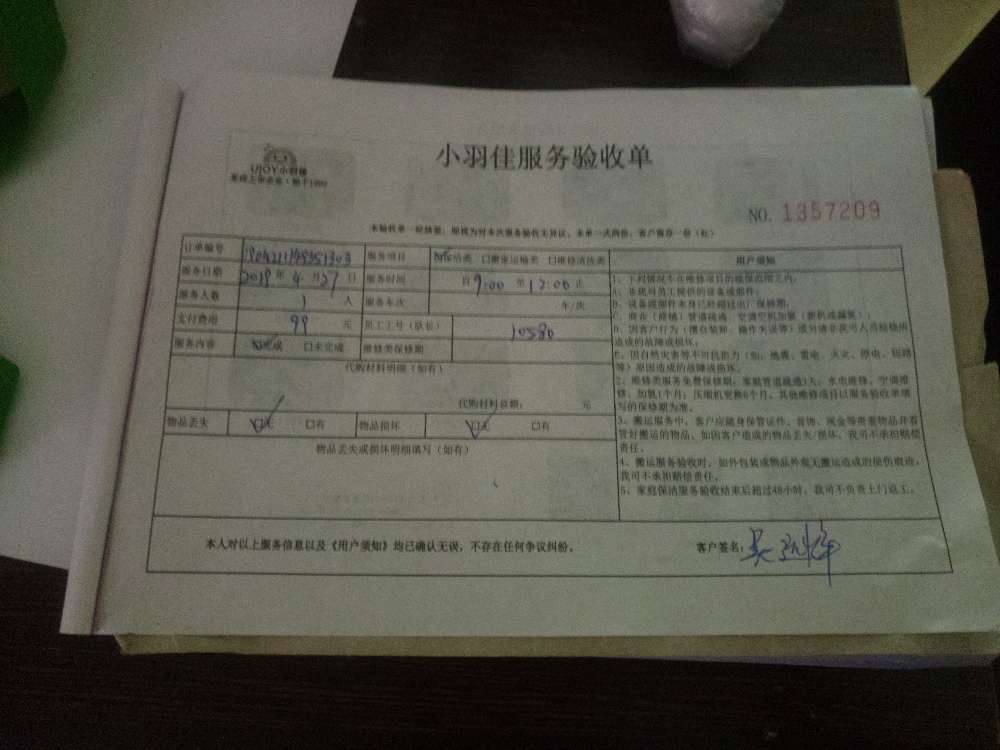 小羽佳服务验收单
UJOY小羽佳
NO. 1357209
订单编号
服务项目 保洁类 □搬家运输类 □维修清洗类
服务日期 2018年4月27日 服务时间 自9:00至12:00止
服务人数 1人 服务车次 车/次
支付费用 99元 员工工号(队长) 10580
服务内容 完成 □未完成 维修类保修期
代购材料明细(如有)
代购材料总额: 元
物品丢失 □无 □有 物品损坏 □无 □有
物品丢失或损坏明细填写(如有)
用户须知
1、下列情况不在维修项目的维保范围之内:
A、非我司员工提供的设备或部件。
B、设备或部件本身已经超过出厂保修期。
造成的故障或损坏。
E、因自然灾害等不可抗拒力(如:地震、雷电、火灾、停电、短路
等)原因造成的故障或损坏。
2、维修类服务免费保修期:家庭管道疏通3天;水电维修、空调维
修、加氨1个月;压缩机更换6个月。其他维修项目以服务验收单填
写的保修期为准。
3、搬运服务中,客户应随身保管证件、首饰、现金等贵重物品并看
管好搬运的物品。如因客户造成的物品丢失/损坏,我司不承担赔偿
责任。
4、搬运服务验收时,如外包装或物品外观无搬运造成的损伤痕迹,
我司不承担赔偿责任。
5、家庭保洁服务验收结束后超过48小时,我司不负责上门返工。
本人对以上服务信息以及《用户须知》均已确认无误,不存在任何争议纠纷。 客户签名: